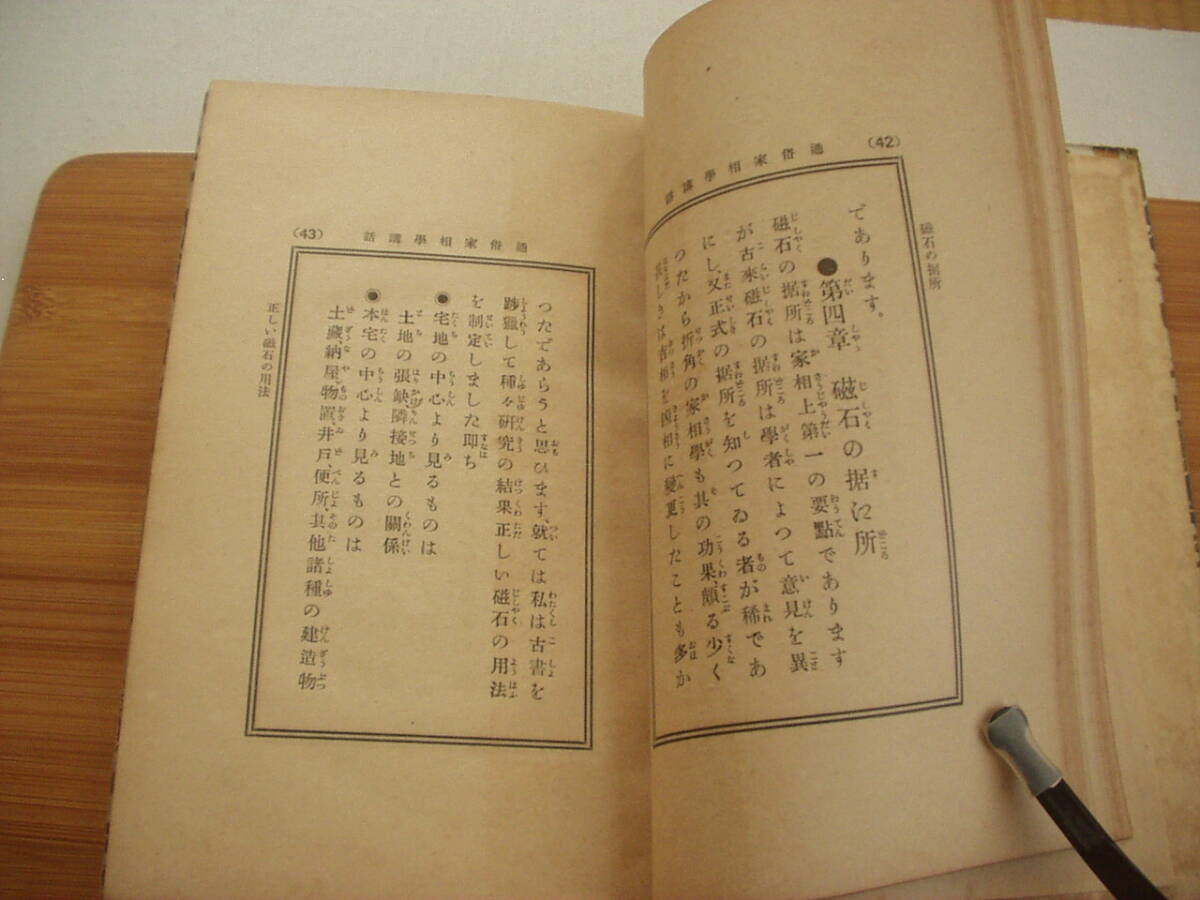 (42)
通俗家相學講話
磁石の据所
であります。
●第四章 磁石の据ゑ所
磁石の据所は家相上第一の要點であります
が古來磁石の据所は學者によつて意見を異
にし、又正式の据所を知つてゐる者が稀であ
つたから折角の家相學も其の功果、頗る少く
しきは吉相を凶相に變更したことも多か
(43)
通俗家相學講話
つたであらうと思ひます、就ては私は古書を
踄獵して種々研究の結果正しい磁石の用法
を制定しました卽ち
◉宅地の中心より見るものは
土地の張缺、隣接地との關係
◉本宅の中心より見るものは
土藏、納屋、物置、井戸、便所、其他諸種の建造物
正しい磁石の用法